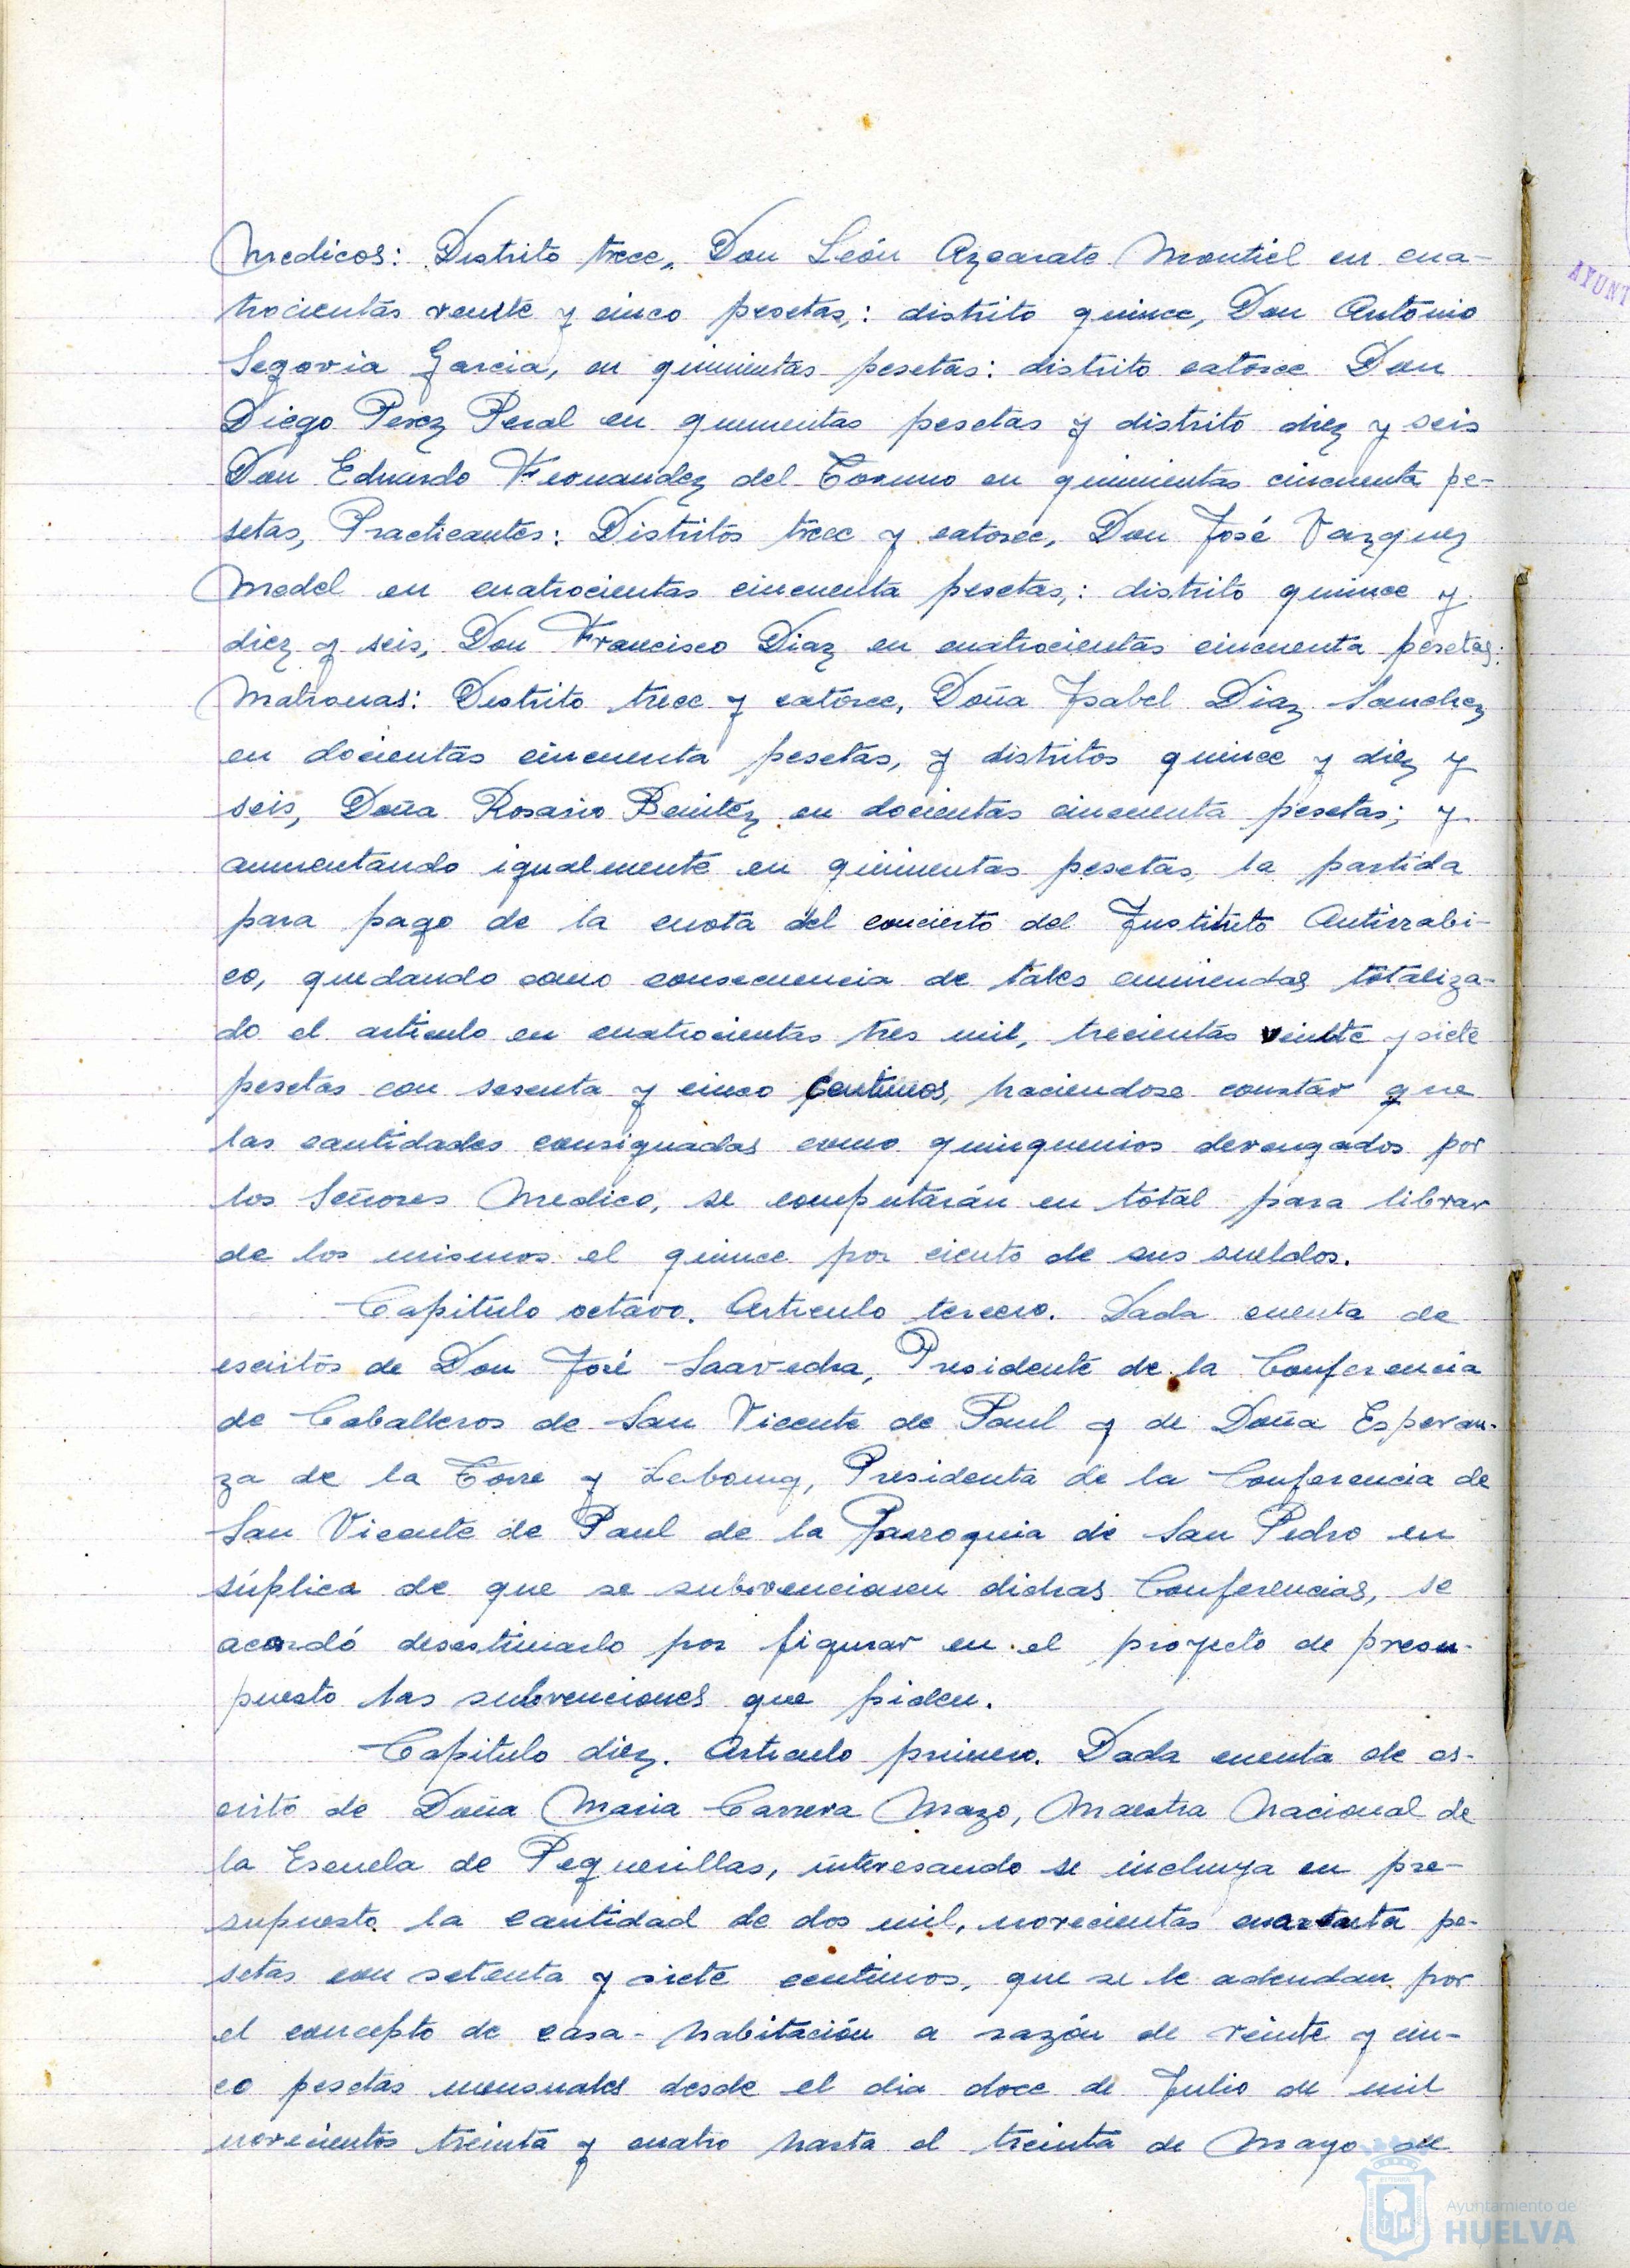 Medicos: Distrito trece, Don León Azcarate Montiel en cua-
trocientas veinte y cinco pesetas,: distrito quince, Don Antonio
Segovia Garcia, en quinientas pesetas: distrito catorce Don
Diego Perez Peral en quinientas pesetas y distrito diez y seis
Don Eduardo Fernandez del Torno en quinientas cincuenta pe-
setas, Practicantes: Distritos trece y catorce, Don José Vazquez
Medel en cuatrocientas cincuenta pesetas,: distrito quince y
diez y seis, Don Francisco Diaz en cuatrocientas cincuenta pesetas:
Matronas: Distrito trece y catorce, Doña Ysabel Diaz Sanchez
en docientas cincuenta pesetas, y distritos quince y diez y
seis, Doña Rosario Benitez en docientas cincuenta pesetas; y
aumentando igualmente en quinientas pesetas, la partida
para pago de la cuota del concierto del Instituto Antirrabi-
co, quedando como consecuencia de tales enmiendas totaliza-
do el articulo en cuatrocientas tres mil, trecientas veinte y siete
pesetas con sesenta y cinco centimos, haciendose constar que
las cantidades consignadas como quinquenios devengados por
los Señores Medico, se computarán en total para librar
de los mismos el quince por ciento de sus sueldos.
Capitulo octavo. Articulo tercero. Dada cuenta de
escritos de Don José Saavedra, Presidente de la Conferencia
de Caballeros de San Vicente de Paul y de Doña Esperan-
za de la Torre y Lebourg, Presidenta de la Conferencia de
San Vicente de Paul de la Parroquia de San Pedro en
súplica de que se subvencionen dichas Conferencias, se
acordó desestimarlo por figurar en el proyecto de presu-
puesto las subvenciones que piden.
Capitulo diez. Articulo primero. Dada cuenta de es-
crito de Doña Maria Carrera Mazo, Maestra Nacional de
la Escuela de Pequenillas, interesando se incluya en pre-
supuesto la cantidad de dos mil, novecientas cuarenta pe-
setas con setenta y siete centimos, que se le adeudan por
el concepto de casa-habitación a razón de veinte y cin-
co pesetas mensuales desde el dia doce de Julio de mil
novecientos treinta y cuatro hasta el treinta de Mayo de
AYUNT
Ayuntamiento de
HUELVA